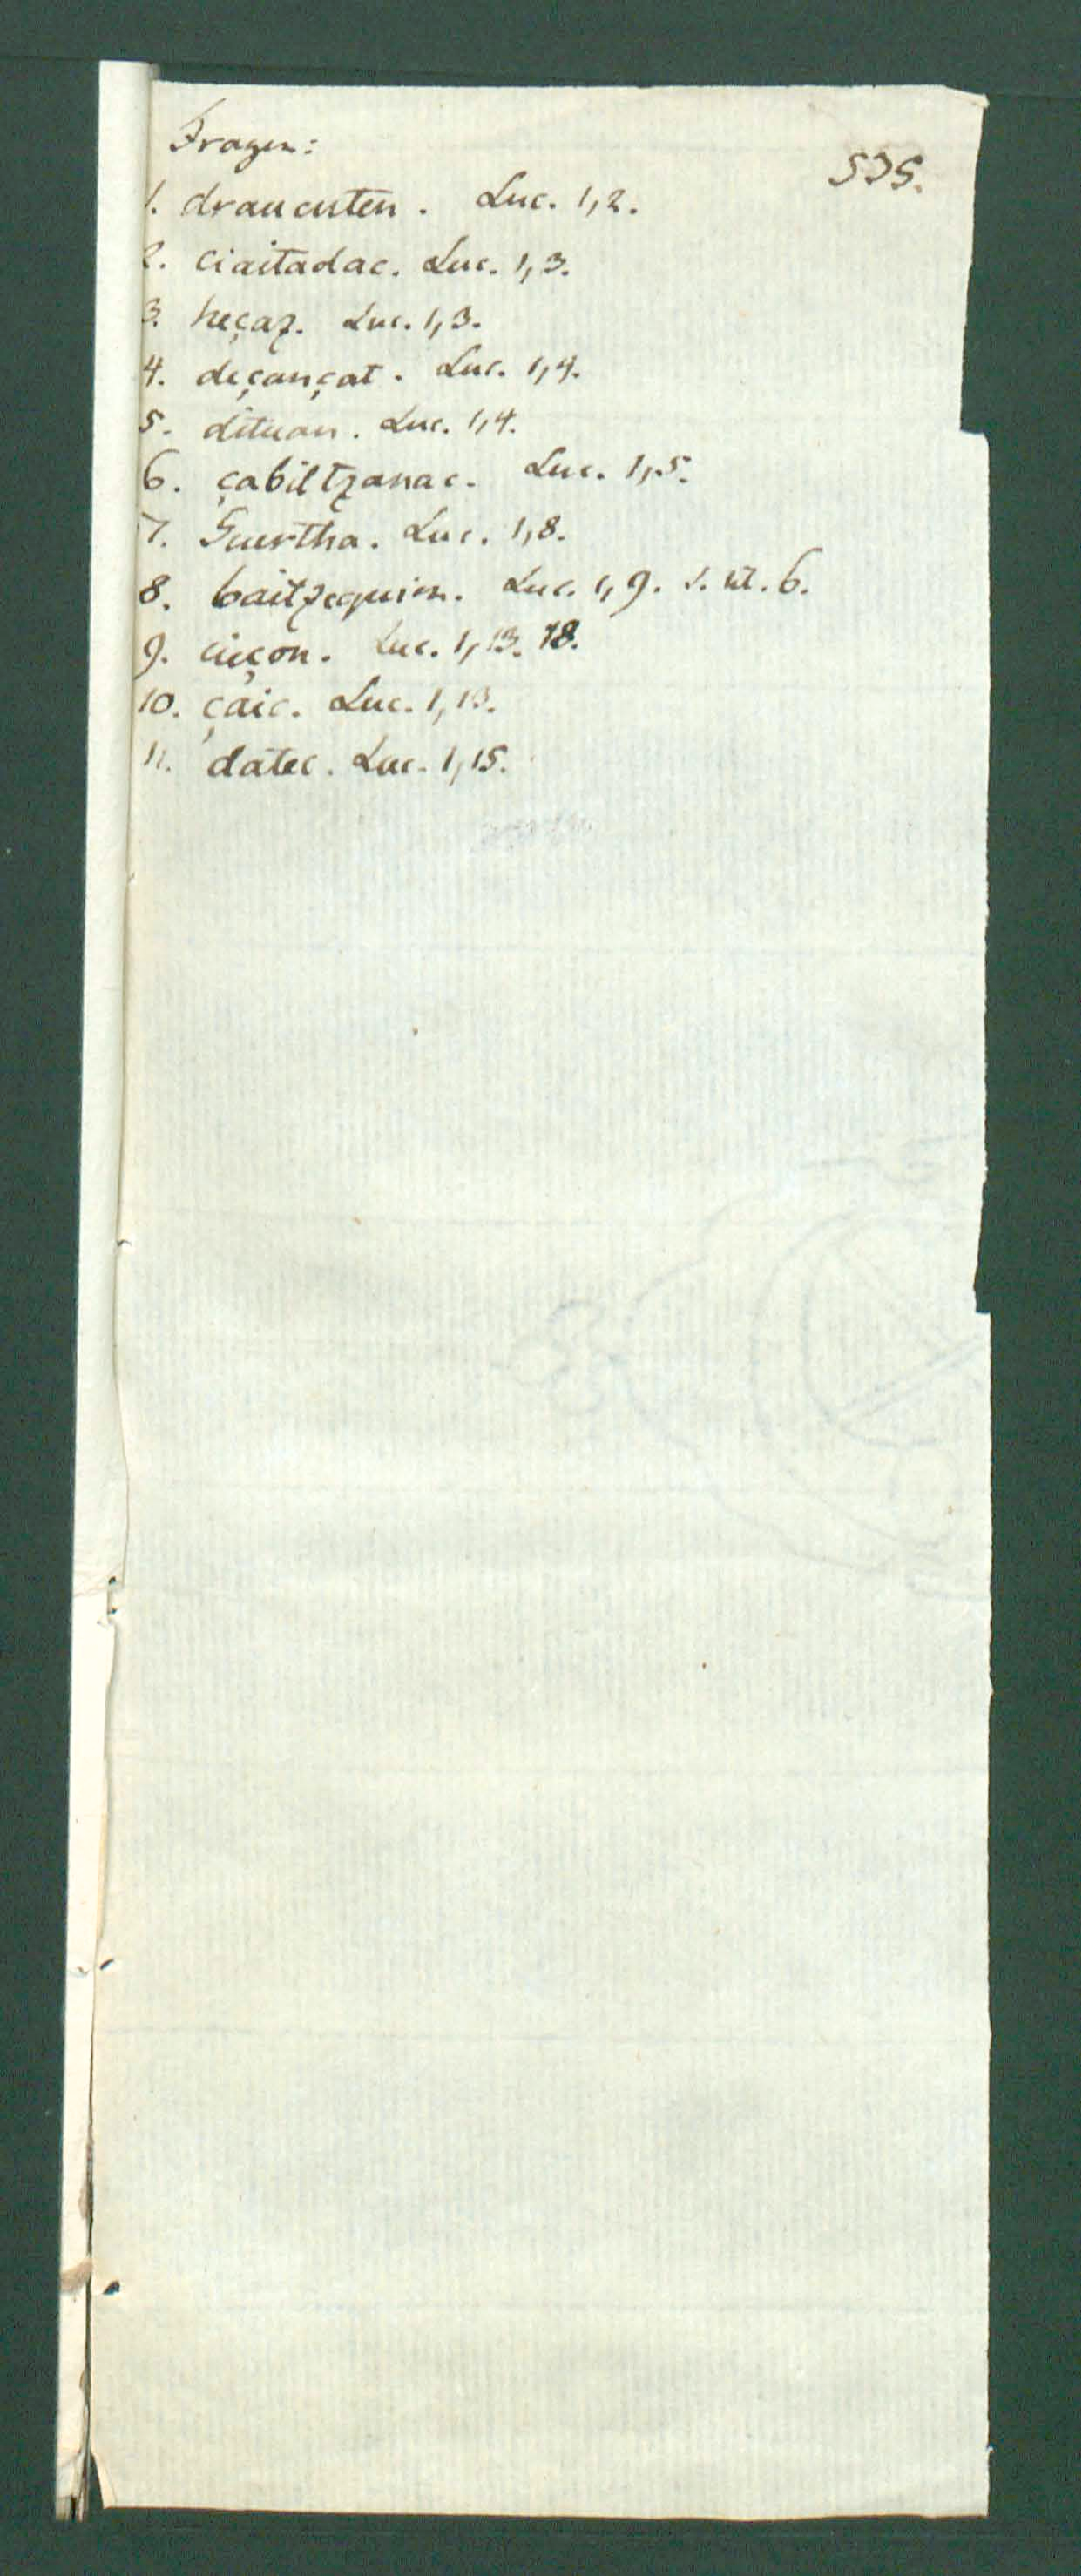 Fragen:
535.
1. draucuten. Luc. 1,2.
2. ciaitadac. Luc. 1,3.
3. heçaz. Luc. 1,3.
4. deçançat. Luc. 1,4.
5. dituan. Luc. 1,4.
6. çabiltzanac. Luc. 1,5.
7. Suertha. Luc. 1,8.
8. baitzequion. Luc. 1,9. s. nt. 6.
9. cieçon. Luc. 1,13. 18.
10. çaic. Luc. 1,13.
11. datec. Luc. 1,15.